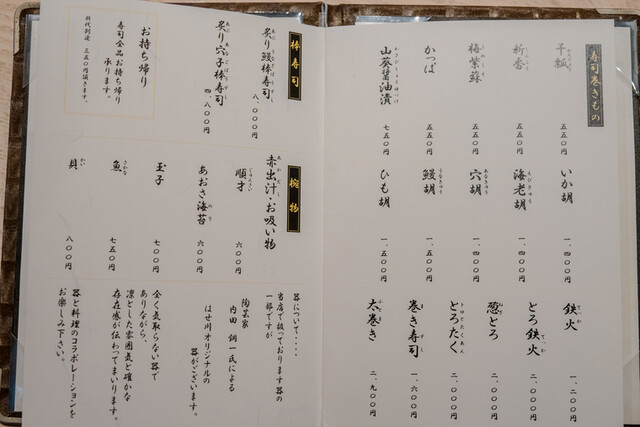 寿司巻きもの
干瓢
五五〇円
新香
五五〇円
梅紫蘇
五五〇円
かっぱ
五五〇円
山葵醤油漬
七五〇円
いか胡
一、一〇〇円
海老胡
一、四〇〇円
穴胡
一、四〇〇円
鰻胡
一、五〇〇円
ひも胡
一、五〇〇円
鉄火
一、二〇〇円
とろ鉄火
二、〇〇〇円
葱とろ
二、〇〇〇円
とろたく
二、〇〇〇円
巻き寿司
一、六〇〇円
太巻き
二、九〇〇円
棒寿司
炙り鰻棒寿司
八、〇〇〇円
炙り穴子棒寿司
四、八〇〇円
お持ち帰り
寿司全品お持ち帰り
承ります。
折代別途 三五〇円頂きます。
椀物
赤出汁・お吸い物
順才
六〇〇円
あおさ海苔
六〇〇円
玉子
七〇〇円
魚
七五〇円
貝
八〇〇円
器について・・・・
当店で扱っております器の
一部ですが
陶芸家
内田 鋼一氏による
はせ川オリジナルの
器がございます。
全く気取らない器で
ありながら、
凛とした雰囲気と確かな
存在感が伝わってまいります。
器と料理のコラボレーションを
お楽しみ下さい。